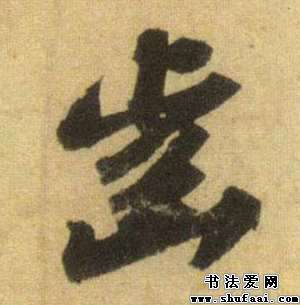 齒
书法爱网
www.shufaai.com